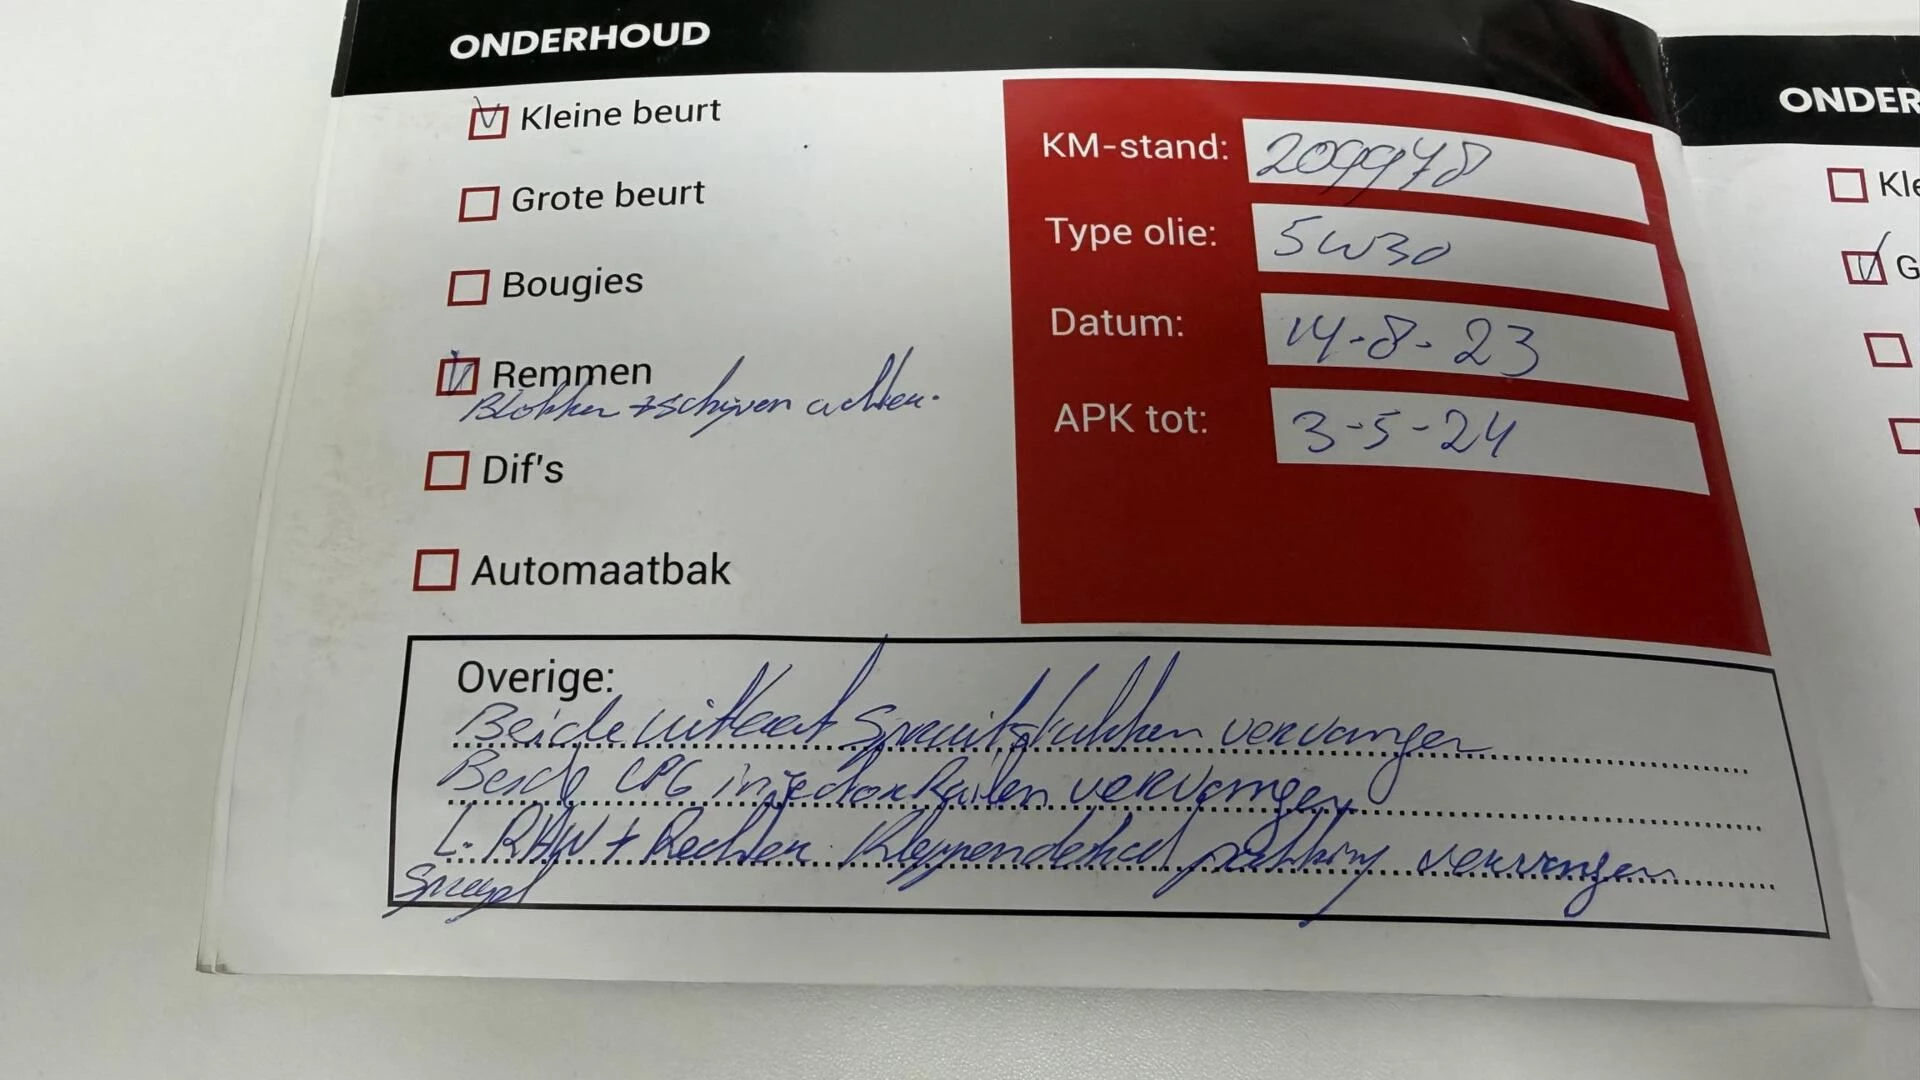 ONDERHOUD
Kleine beurt
Grote beurt
Bougies
Remmen
Blokken + schijven achter.
Dif's
Automaatbak
KM-stand: 209978
Type olie: 5W30
Datum: 14-8-23
APK tot: 3-5-24
Overige:
Beide uitlaat Spruitstukken vervangen
Beide LPG injector Railen vervangen
L. + Rechter Kleppendeksel pakking vervangen
Spiegel
ONDER
Kle
G